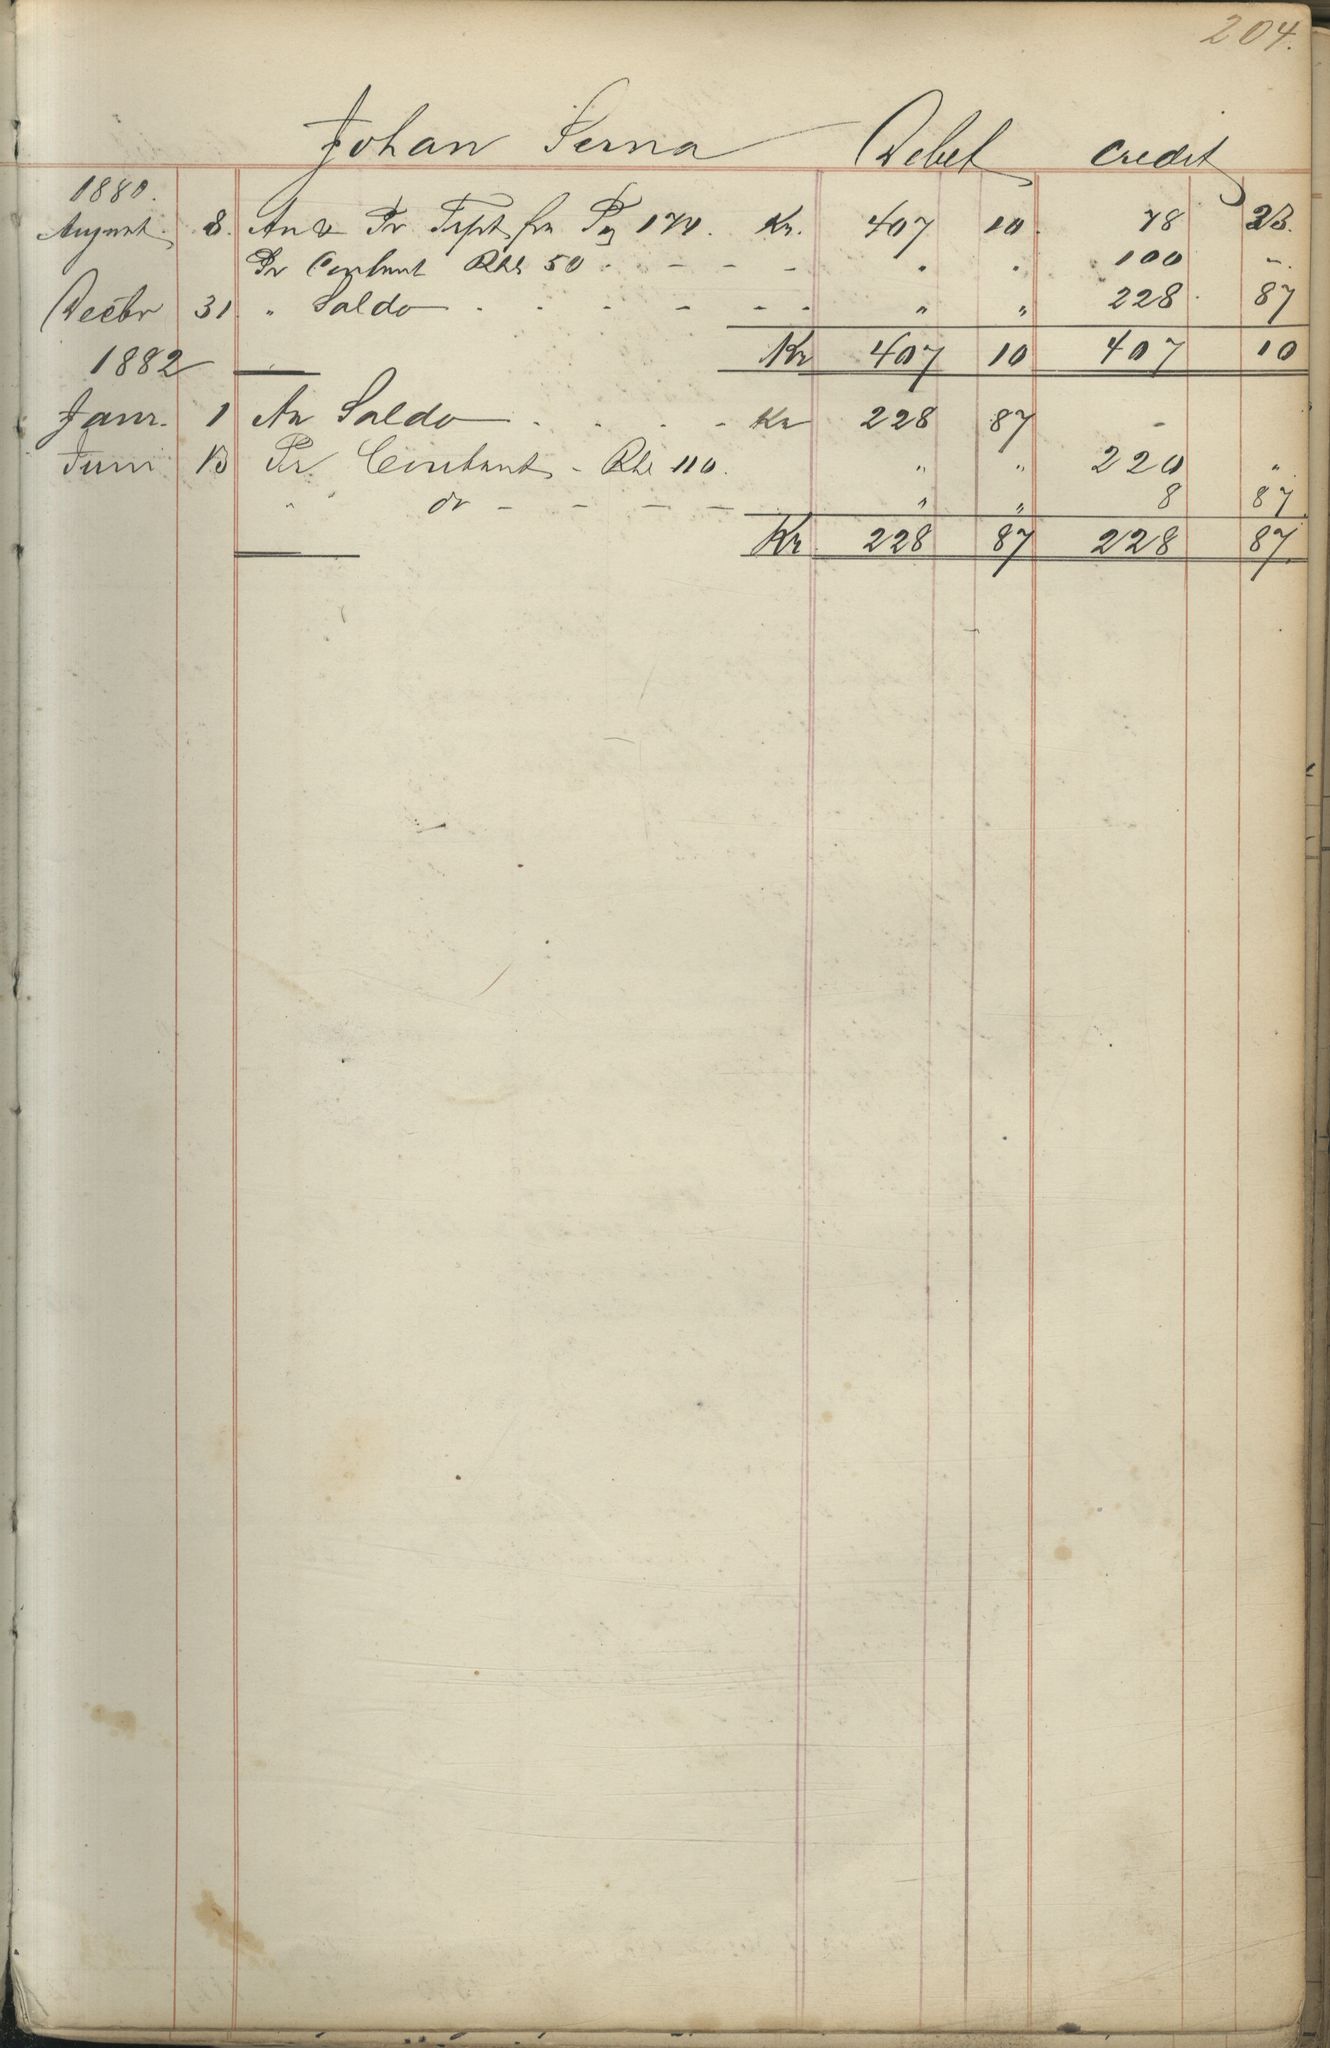 204.
Johan Serna Debet Credit
1880.
August 8. An & Pr Trspt fra Pag 174. Kr. 407 10. 78 23.
Pr Contant Rbl 50 . . - - - . . 100 -.
Decbr 31 " Saldo . . . - - - " " 228 87
Kr 407 10 407 10
1882
Janr. 1 An Saldo . . . - Kr 228 87 -
Juni 13 Pr Contant - Rbl 110. " " 220 "
" " do - - - - " " 8 87
Kr 228 87 228 87.